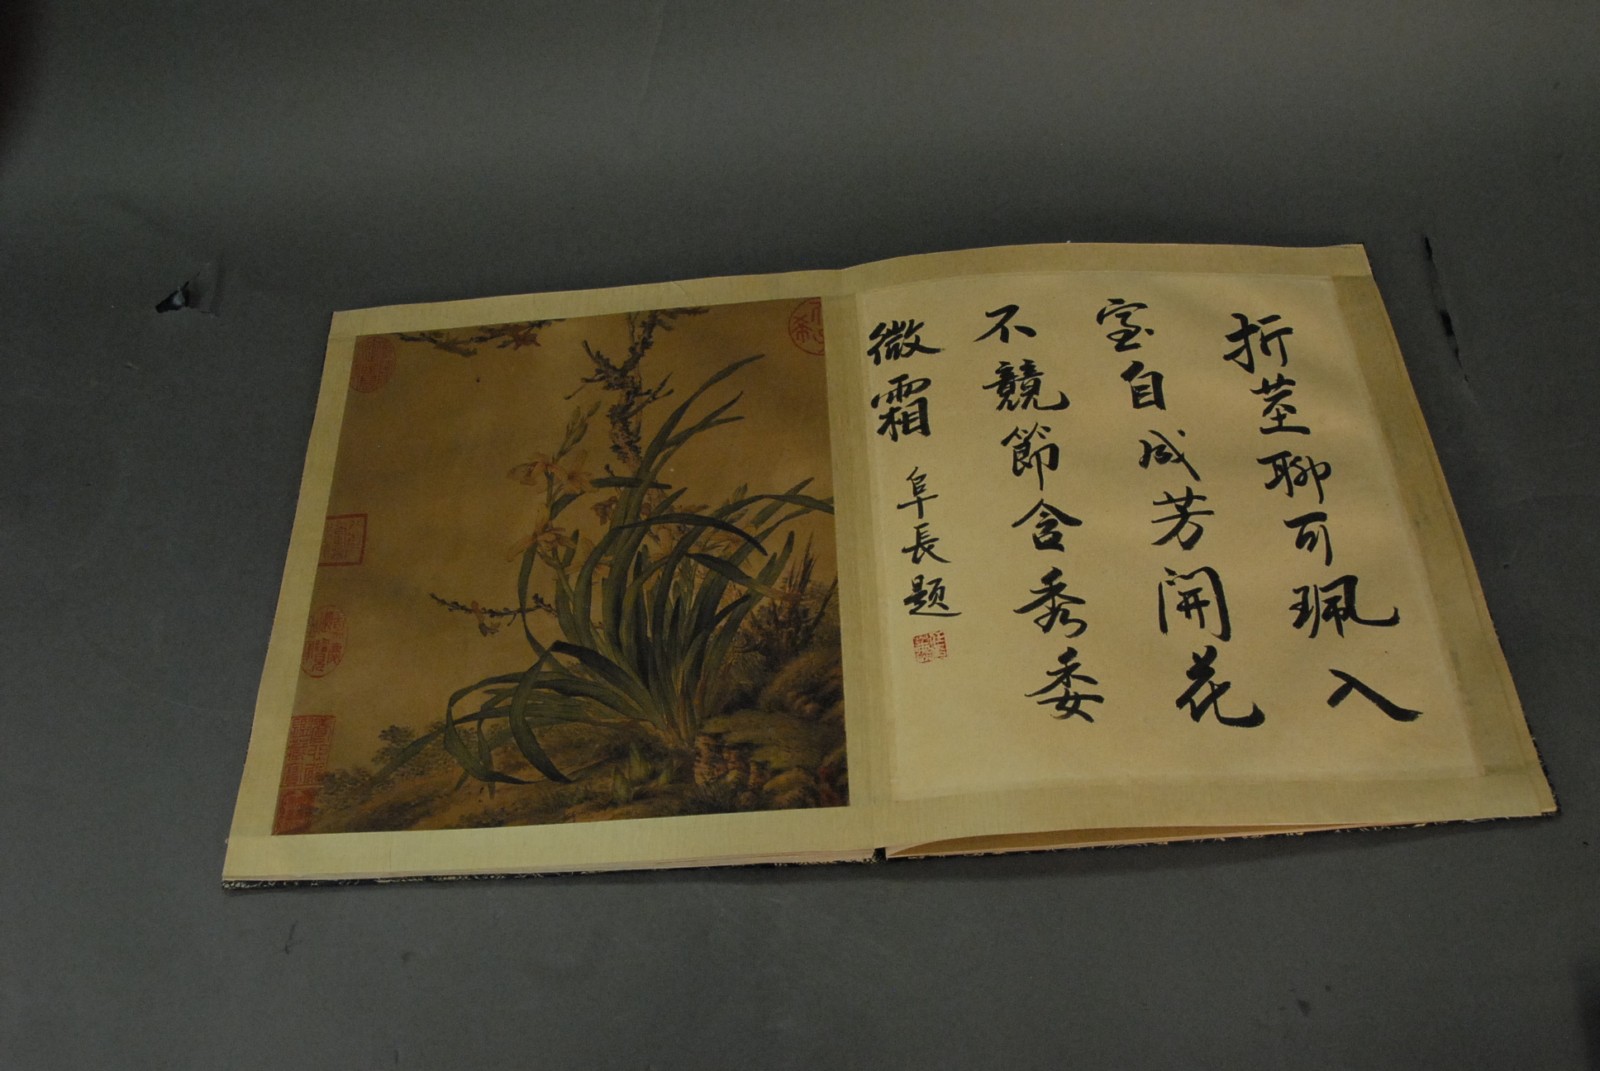 折茎聊可珮入
室自成芳開花
不競節含秀委
微霜
阜長题